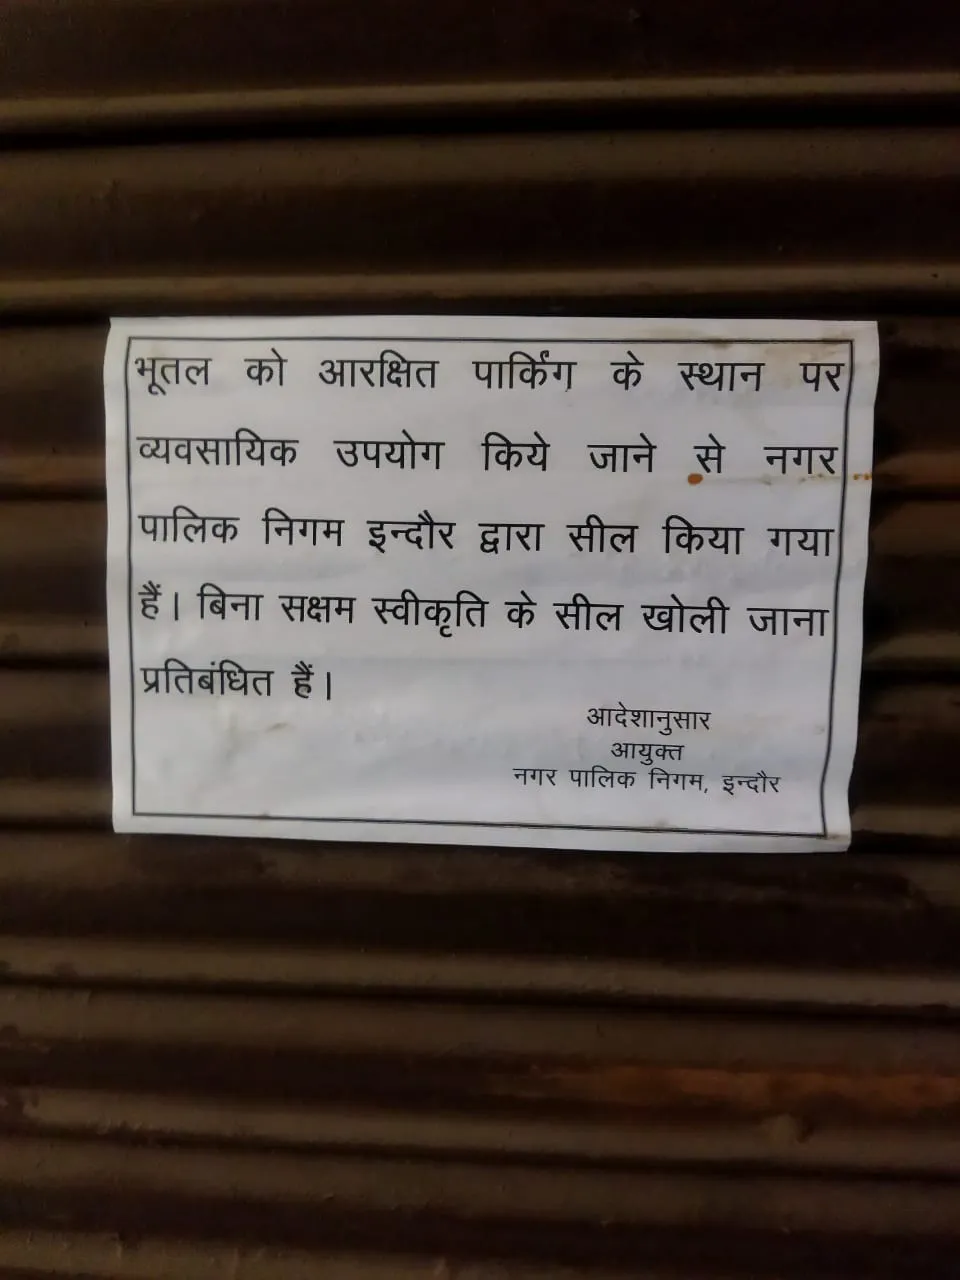 भूतल को आरक्षित पार्किंग के स्थान पर
व्यवसायिक उपयोग किये जाने से नगर
पालिक निगम इन्दौर द्वारा सील किया गया
हैं। बिना सक्षम स्वीकृति के सील खोली जाना
प्रतिबंधित हैं।
आदेशानुसार
आयुक्त
नगर पालिक निगम, इन्दौर